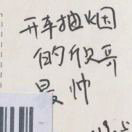 开车抽烟
的倪哥
最帅